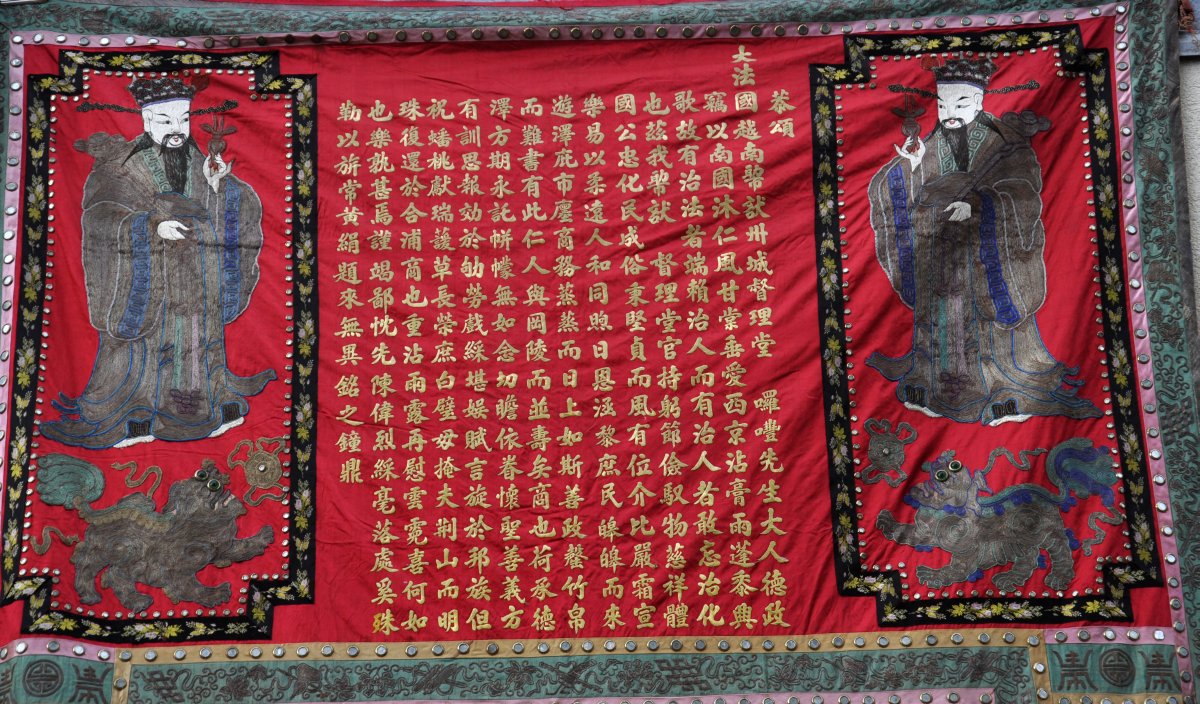 恭頌
大法國越南幫卅城督理堂 囉先生大人德政
竊以南國沐仁風甘棠垂愛西京沾膏雨蓬黍興
歌故有治法者端賴治人而有治人者敢忘治化
也茲我幫督理堂官持躬節儉馭物慈祥體
國公忠化民成俗秉堅貞而風有位介比嚴霜宣
樂易以柔遠人和同煦日恩涵黎庶民皞皞而來
遊澤庇市廛商務蒸蒸而日上如斯善政罄竹帛
而難書有此仁人與岡陵而並壽矣商也荷承德
澤方期永託帡幪無如念切瞻依眷懷聖善義方
有訓思報効於劬勞戲綵堪娛賦言旋於邦族但
祝蟠桃獻瑞蘐草長榮庶白璧毋掩夫荆山而明
珠復還於合浦商也重沾雨露再慰雲霓喜何如
也樂孰甚焉謹竭鄙忱先陳偉烈綵毫落處奚殊
勒以旂常黃絹題來無異銘之鐘鼎